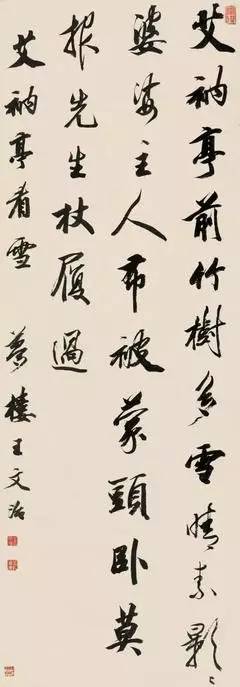 艾衲亭前竹樹多雪晴素影〻
婆娑主人布被蒙頭臥莫
報先生杖履過
艾衲亭看雪 夢樓王文治